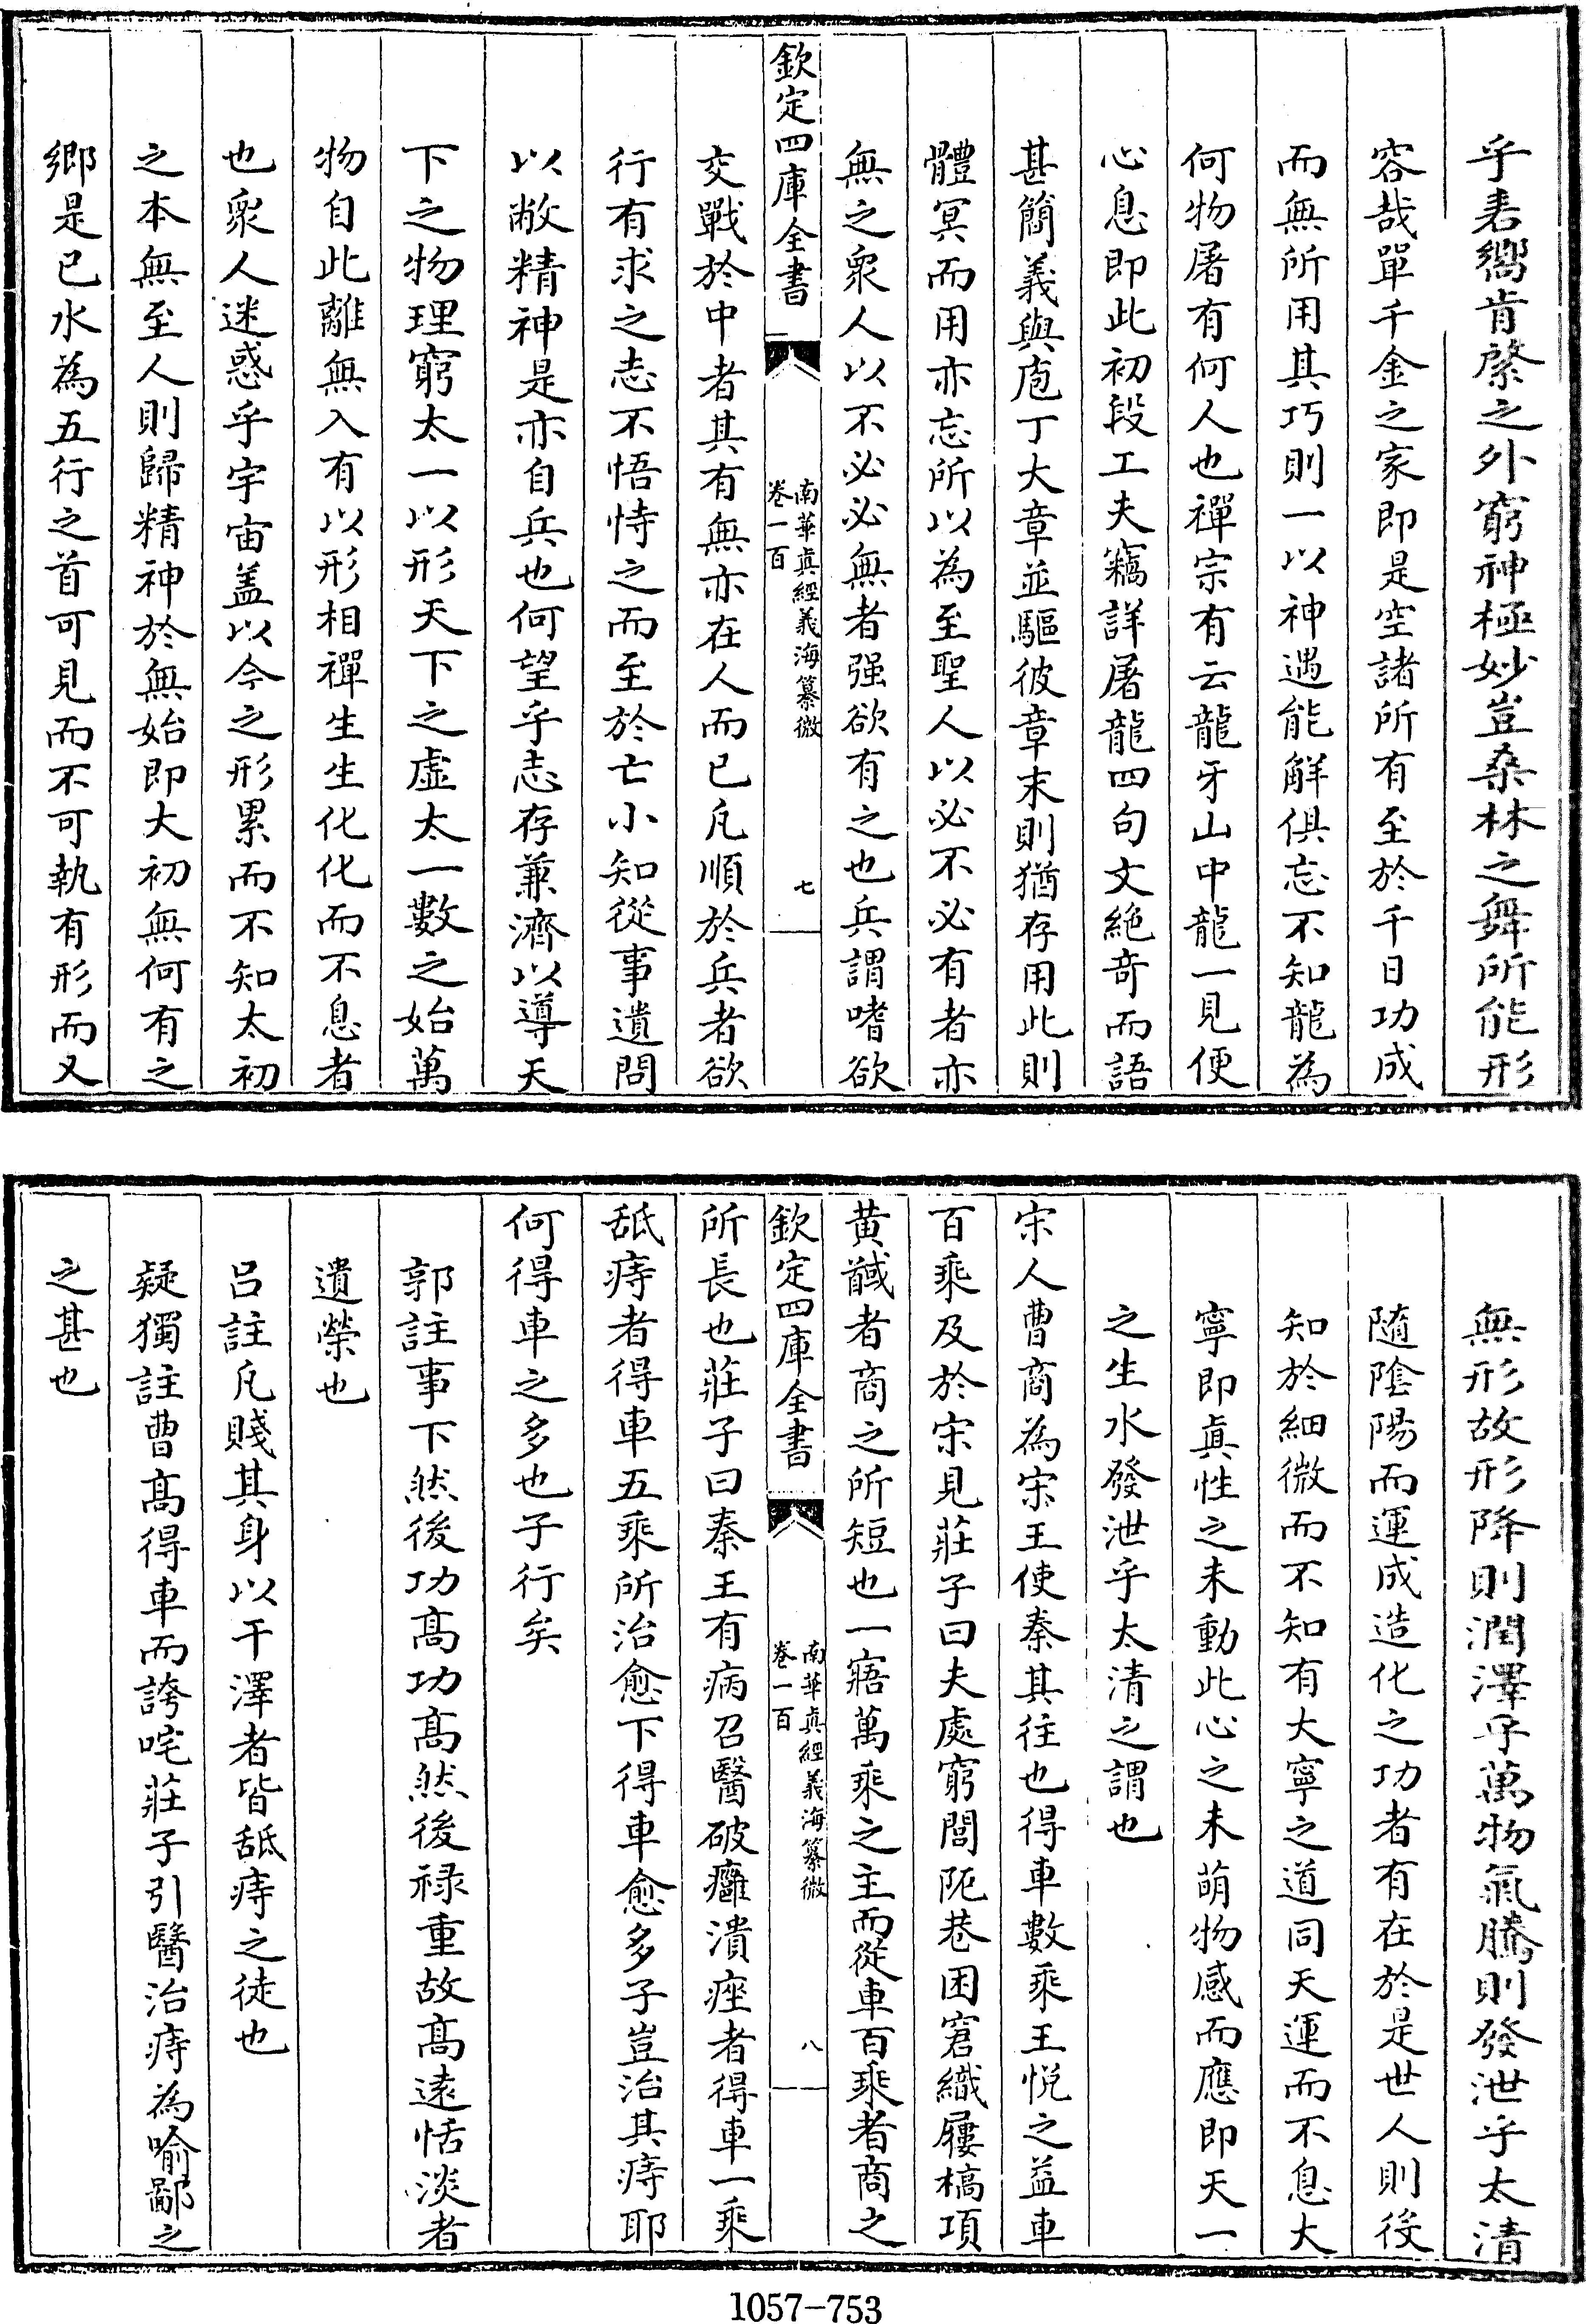 乎砉嚮肯綮之外窮神極妙豈桑林之舞所能形
容哉單千金之家即是空諸所有至於千日功成
而無所用其巧則一以神遇能解俱忘不知龍為
何物屠有何人也禪宗有云龍牙山中龍一見便
心息即此初段工夫竊詳屠龍四句文絶竒而語
甚簡義與庖丁大章並驅彼章末則猶存用此則
體冥而用亦忘所以為至聖人以必不必有者亦
無之衆人以不必必無者强欲有之也兵謂嗜欲
欽定四庫全書
南華真經義海纂微
卷一百
七
交戰於中者其有無亦在人而已凡順於兵者欲
行有求之志不悟恃之而至於亡小知從事遺問
以敝精神是亦自兵也何望乎志存兼濟以導天
下之物理窮太一以形天下之虛太一數之始萬
物自此離無入有以形相禪生生化化而不息者
也衆人迷惑乎宇宙盖以今之形累而不知太初
之本無至人則歸精神於無始即大初無何有之
鄉是已水為五行之首可見而不可執有形而又
無形故形降則潤澤乎萬物氣騰則發泄乎太清
隨隂陽而運成造化之功者有在於是世人則役
知於細微而不知有大寧之道同天運而不息大
寧即真性之未動此心之未萌物感而應即天一
之生水發泄乎太清之謂也
宋人曹商為宋王使秦其往也得車數乘王悦之益車
百乘及於宋見莊子曰夫處窮閭阨巷困窘織屨槁項
黄馘者商之所短也一寤萬乘之主而從車百乘者商之
欽定四庫全書
南華真經義海纂微
卷一百
八
所長也莊子曰秦王有病召醫破癰潰痤者得車一乘
舐痔者得車五乘所治愈下得車愈多子豈治其痔耶
何得車之多也子行矣
郭註事下然後功髙功髙然後禄重故髙遠恬淡者
遺榮也
呂註凡賤其身以干澤者皆舐痔之徒也
疑獨註曹髙得車而誇咤莊子引醫治痔為喻鄙之
之甚也
1057-753